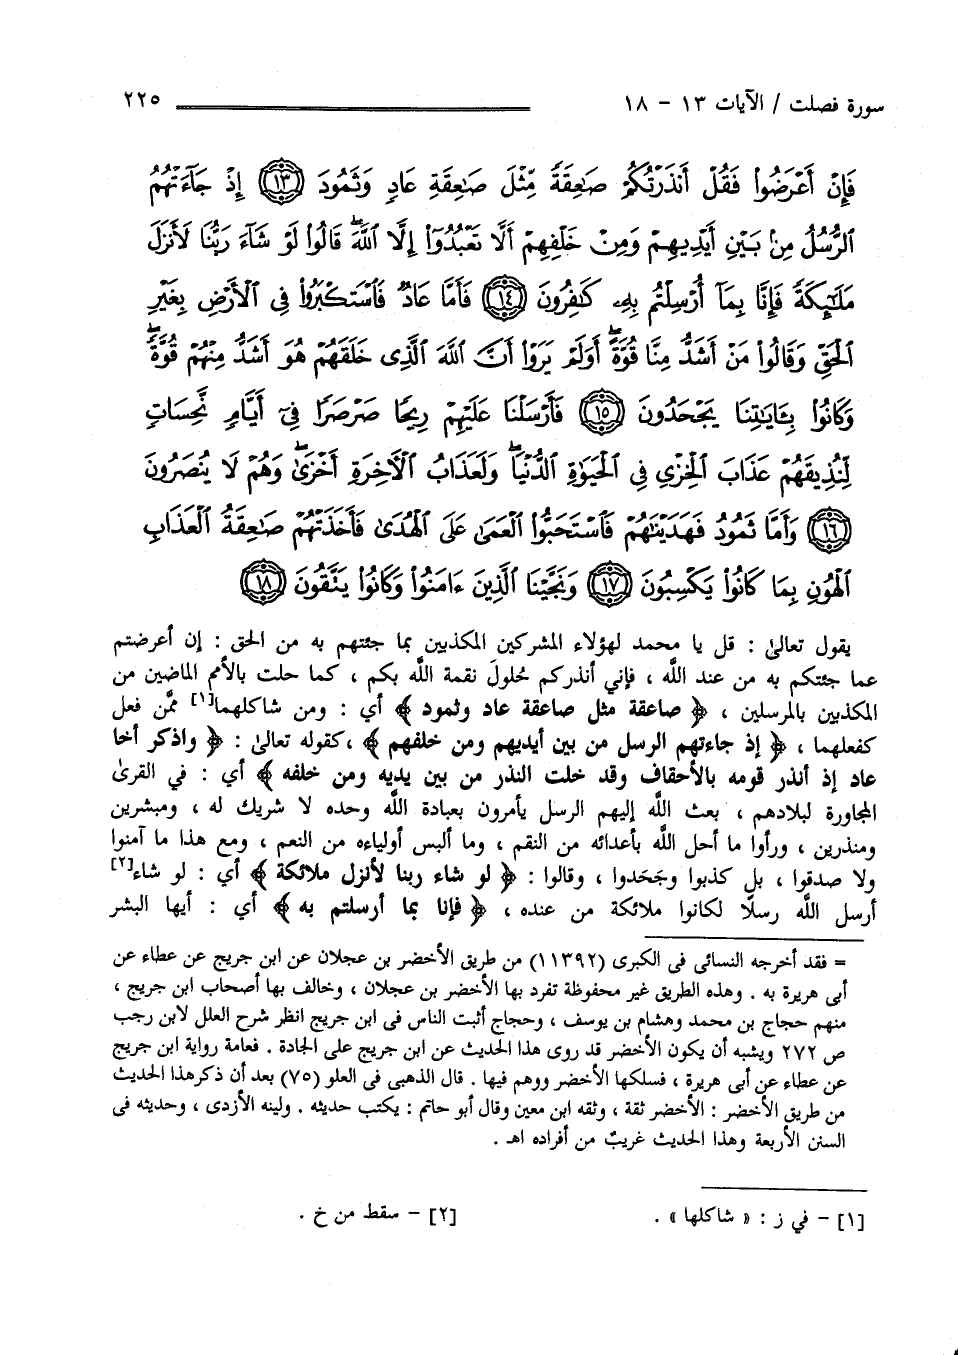 سورة فصلت / الآيات ١٣ - ١٨ ٢٢٥
فَإِنْ أَعْرَضُوا۟ فَقُلْ أَنذَرْتُكُمْ صَـٰعِقَةً مِّثْلَ صَـٰعِقَةِ عَادٍ وَثَمُودَ ١٣ إِذْ جَآءَتْهُمُ
ٱلرُّسُلُ مِنۢ بَيْنِ أَيْدِيهِمْ وَمِنْ خَلْفِهِمْ أَلَّا تَعْبُدُوٓا۟ إِلَّا ٱللَّهَ ۖ قَالُوا۟ لَوْ شَآءَ رَبُّنَا لَأَنزَلَ
مَلَـٰٓئِكَةً فَإِنَّا بِمَآ أُرْسِلْتُم بِهِۦ كَـٰفِرُونَ ١٤ فَأَمَّا عَادٌ فَٱسْتَكْبَرُوا۟ فِى ٱلْأَرْضِ بِغَيْرِ
ٱلْحَقِّ وَقَالُوا۟ مَنْ أَشَدُّ مِنَّا قُوَّةً ۖ أَوَلَمْ يَرَوْا۟ أَنَّ ٱللَّهَ ٱلَّذِى خَلَقَهُمْ هُوَ أَشَدُّ مِنْهُمْ قُوَّةً ۖ
وَكَانُوا۟ بِـَٔايَـٰتِنَا يَجْحَدُونَ ١٥ فَأَرْسَلْنَا عَلَيْهِمْ رِيحًا صَرْصَرًا فِىٓ أَيَّامٍ نَّحِسَاتٍ
لِّنُذِيقَهُمْ عَذَابَ ٱلْخِزْىِ فِى ٱلْحَيَوٰةِ ٱلدُّنْيَا ۖ وَلَعَذَابُ ٱلْـَٔاخِرَةِ أَخْزَىٰ ۖ وَهُمْ لَا يُنصَرُونَ
١٦ وَأَمَّا ثَمُودُ فَهَدَيْنَـٰهُمْ فَٱسْتَحَبُّوا۟ ٱلْعَمَىٰ عَلَى ٱلْهُدَىٰ فَأَخَذَتْهُمْ صَـٰعِقَةُ ٱلْعَذَابِ
ٱلْهُونِ بِمَا كَانُوا۟ يَكْسِبُونَ ١٧ وَنَجَّيْنَا ٱلَّذِينَ ءَامَنُوا۟ وَكَانُوا۟ يَتَّقُونَ ١٨
يقول تعالىٰ : قل يا محمد لهؤلاء المشركين المكذبين بما جئتهم به من الحق : إن أعرضتم
عما جئتكم به من عند اللَّه ، فإني أنذركم حُلولَ نقمة اللَّه بكم ، كما حلت بالأمم الماضين من
المكذبين بالمرسلين ، ﴿ صاعقة مثل صاعقة عاد وثمود ﴾ أي : ومن شاكلهما[١] ممَّن فعل
كفعلهما ، ﴿ إذ جاءتهم الرسل من بين أيديهم ومن خلفهم ﴾ ،كقوله تعالىٰ : ﴿ واذكر أخا
عاد إذ أنذر قومه بالأحقاف وقد خلت النذر من بين يديه ومن خلفه ﴾ أي : في القرىٰ
المجاورة لبلادهم ، بعث اللَّه إليهم الرسل يأمرون بعبادة اللَّه وحده لا شريك له ، ومبشرين
ومنذرين ، ورأوا ما أحل اللَّه بأعدائه من النقم ، وما ألبس أولياءه من النعم ، ومع هذا ما آمنوا
ولا صدقوا ، بل كذبوا وجَحَدوا ، وقالوا : ﴿ لو شاء ربنا لأنزل ملائكة ﴾ أي : لو شاء[٢]
أرسل اللَّه رسلًا لكانوا ملائكة من عنده، ﴿ فإنا بما أرسلتم به ﴾ أي : أيها البشر
= فقد أخرجه النسائى فى الكبرى (١١٣٩٢) من طريق الأخضر بن عجلان عن ابن جريج عن عطاء عن
أبى هريرة به . وهذه الطريق غير محفوظة تفرد بها الأخضر بن عجلان ، وخالف بها أصحاب ابن جريج ،
منهم حجاج بن محمد وهشام بن يوسف ، وحجاج أثبت الناس فى ابن جريج انظر شرح العلل لابن رجب
ص ٢٧٢ ويشبه أن يكون الأخضر قد روى هذا الحديث عن ابن جريج على الجادة . فعامة رواية ابن جريج
عن عطاء عن أبى هريرة ، فسلكها الأخضر ووهم فيها . قال الذهبى فى العلو (٧٥) بعد أن ذكرهذا الحديث
من طريق الأخضر : الأخضر ثقة ، وثقه ابن معين وقال أبو حاتم : يكتب حديثه . ولينه الأزدى ، وحديثه فى
السنن الأربعة وهذا الحديث غريبٌ من أفراده اهـ .
[١] - في ز : « شاكلها » . [٢] - سقط من خ .